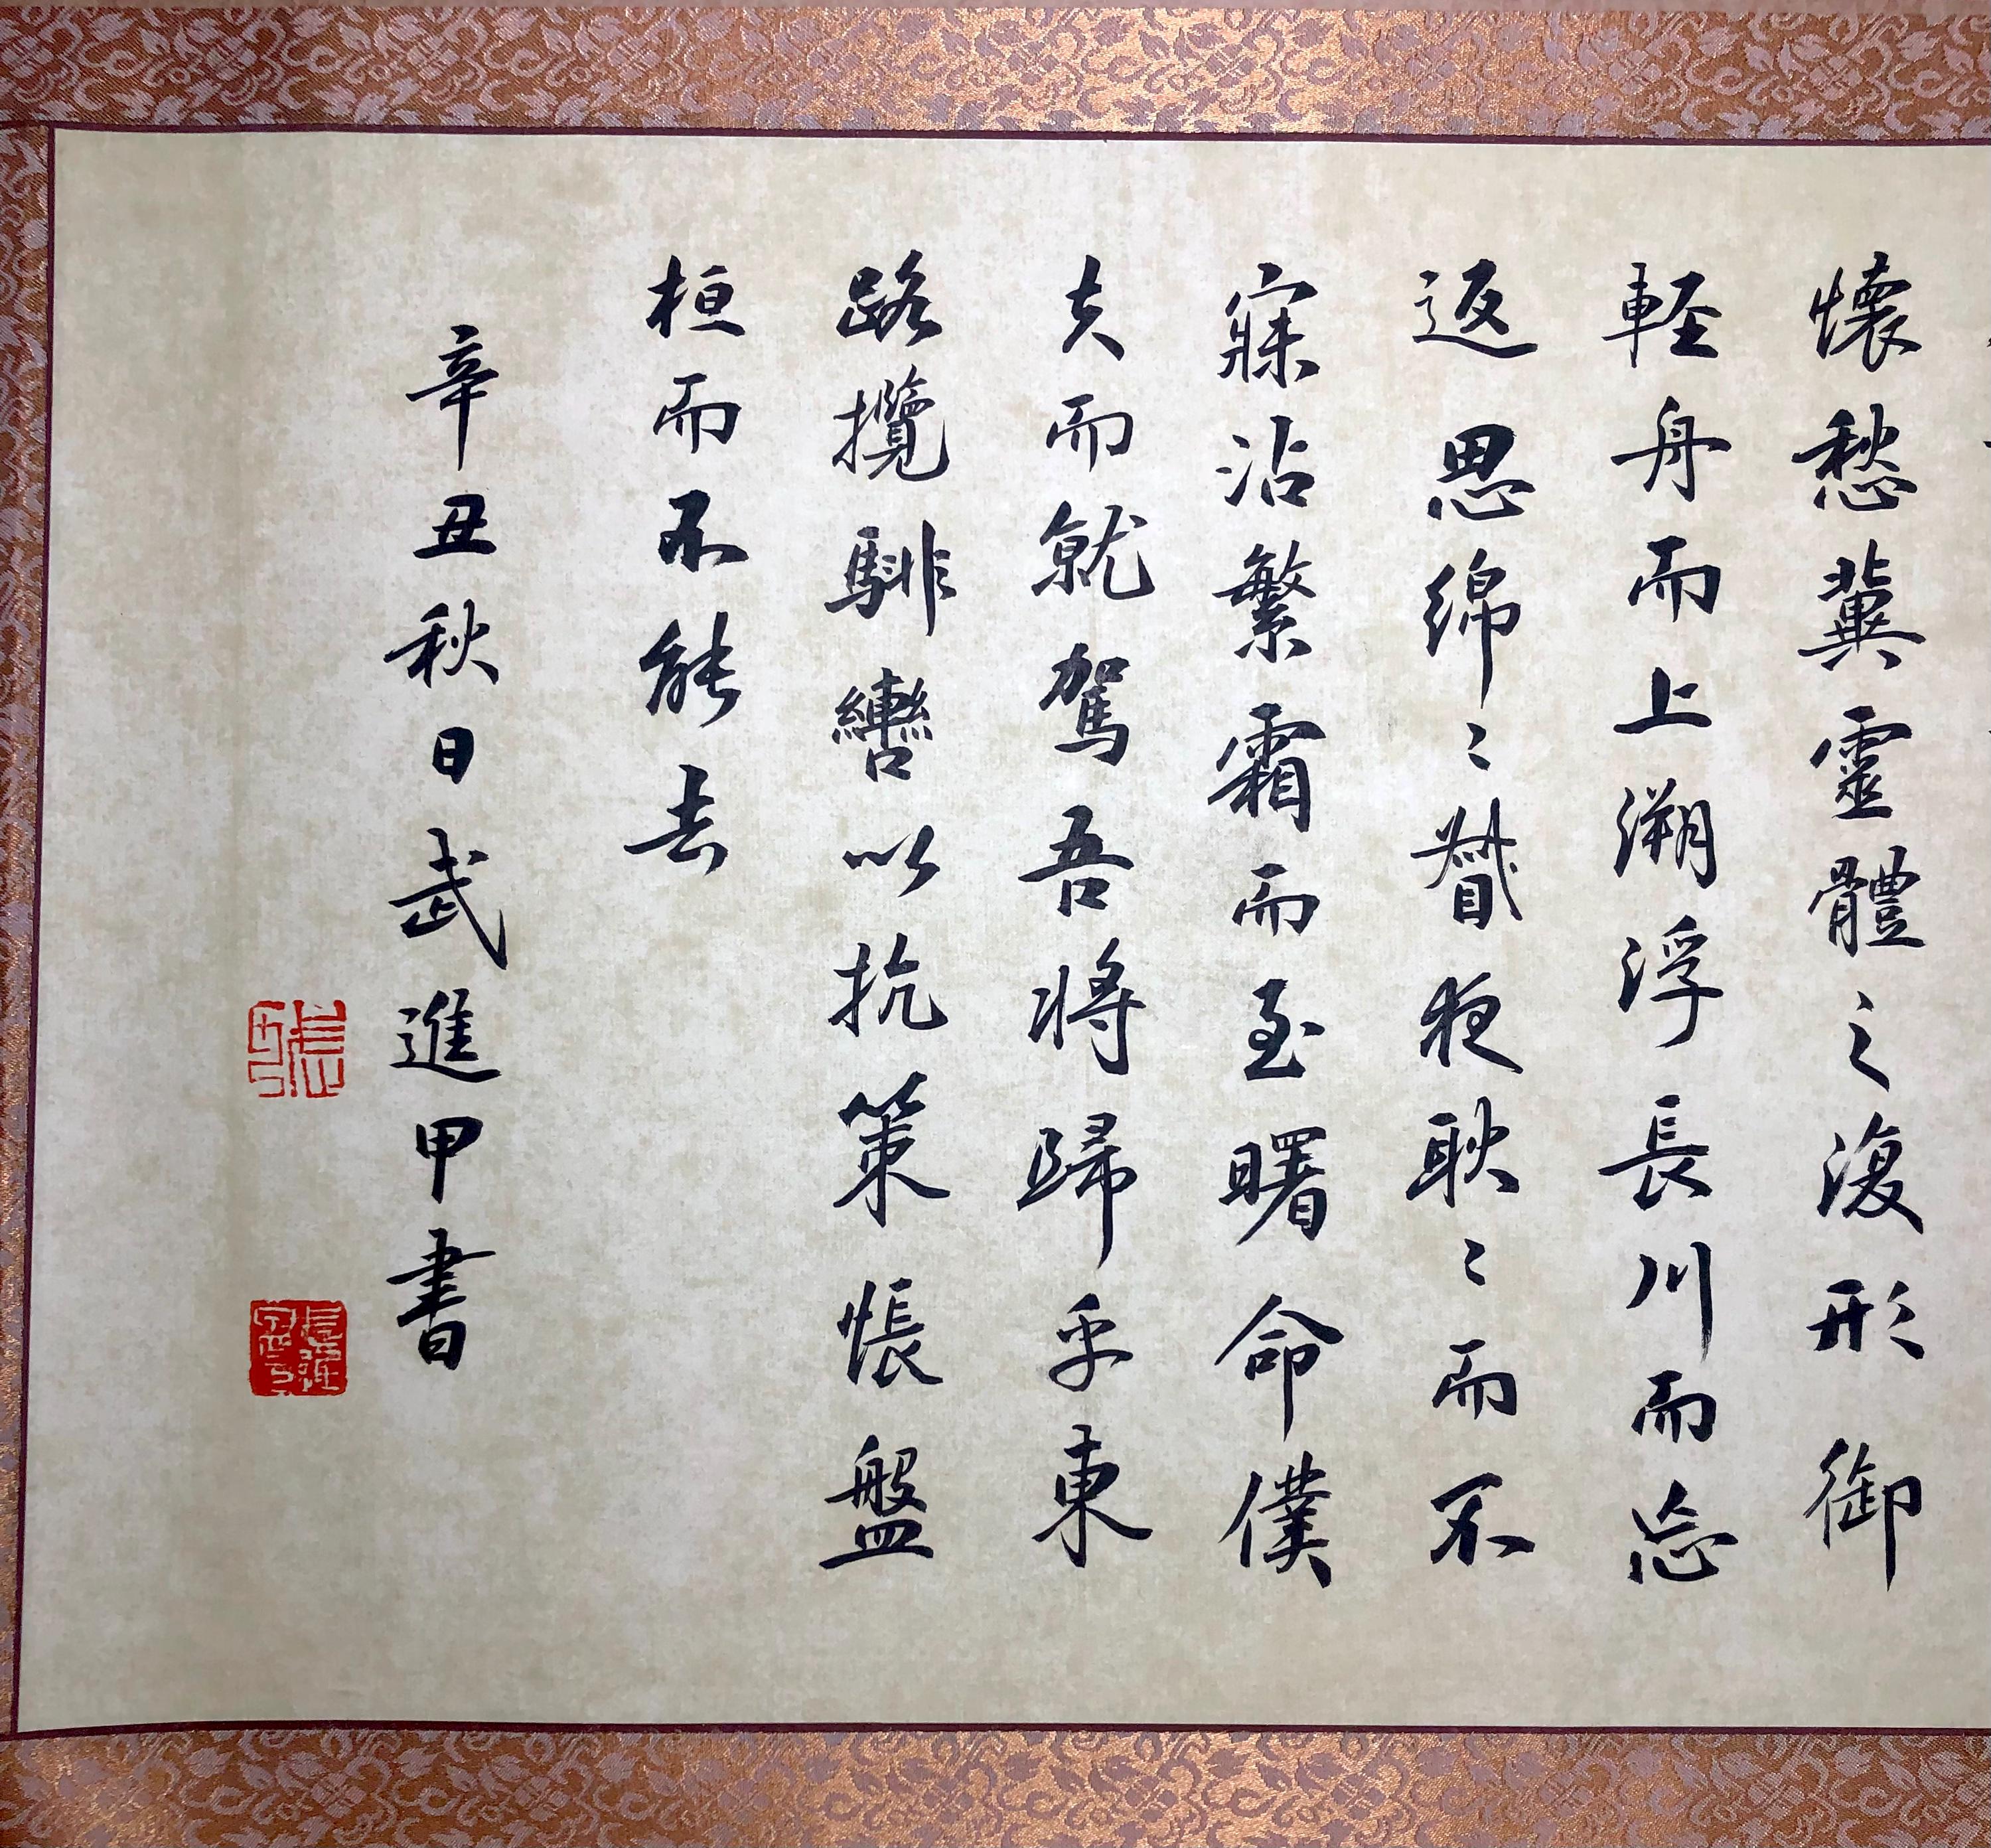 懷愁冀靈體之復形御
輕舟而上溯浮長川而忘
返思綿〻增夜耿〻而不
寐沾繁霜而至曙命僕
夫而就駕吾將歸乎東
路攬騑轡以抗策悵盤
桓而不能去
辛丑秋日武進甲書